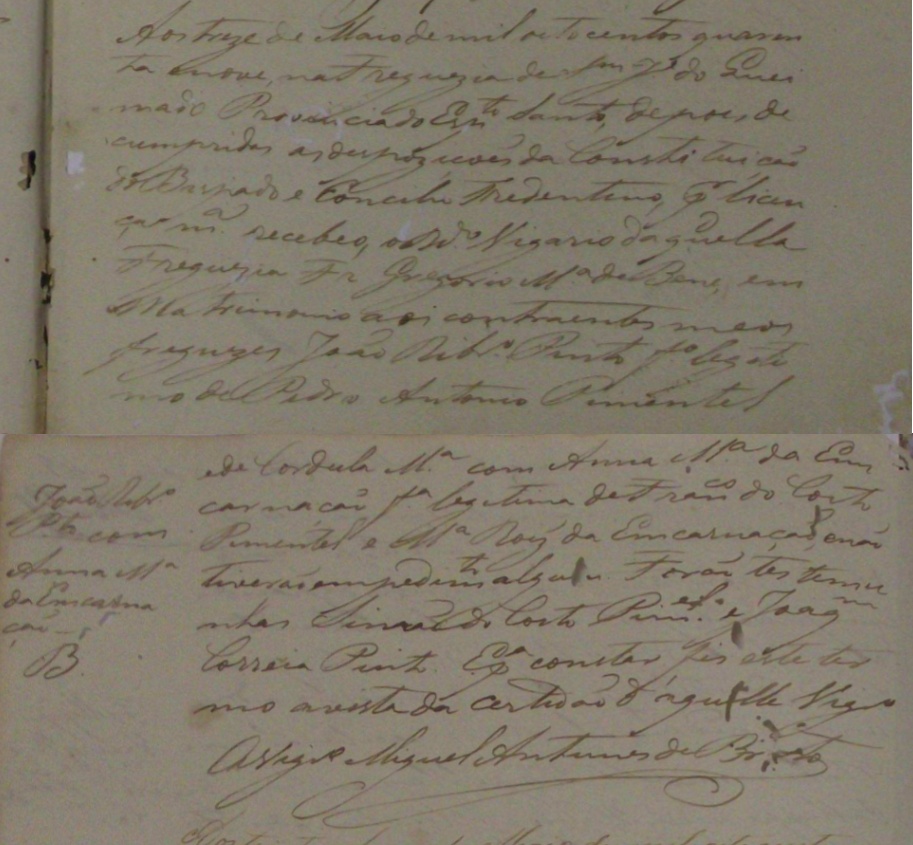 Aos treze de Maio de mil oito centos quaren
ta e nove, na Freguezia de Sm Je do Quei
mado Provincia do Esp.to Santo, depois de
cumpridas as despozicoẽs da Constituicaõ
do Bispado e Concilio Tredentino, p.r licen
ça m.a recebeo, o Rd.o Vigario daquella
Freguezia Fr Gregorio M.a de Bene, em
Matrimonio aos contraentes meos
freguezes João Rib.o Pinto f.o legiti
mo de Pedro Antonio Pimentel
e de Cordula M.a com Anna M.a da En
carnacaõ f.a legitima de Fran.co do Couto
Pimentel e M.a Roiz da Encarnaçaõ, e naõ
tiveraõ empedim.to algum. Foraõ testemu
nhas Simaõ do Couto Pim.el e Joaq.m
Correia Pinto. E p.a constar fis este ter
mo a vista da certidaõ d'aquelle Vig.o
O Vigr.o Miguel Antunes de Brito
João Rib.o
P.to com
Anna M.a
da Encarna
çaõ
B